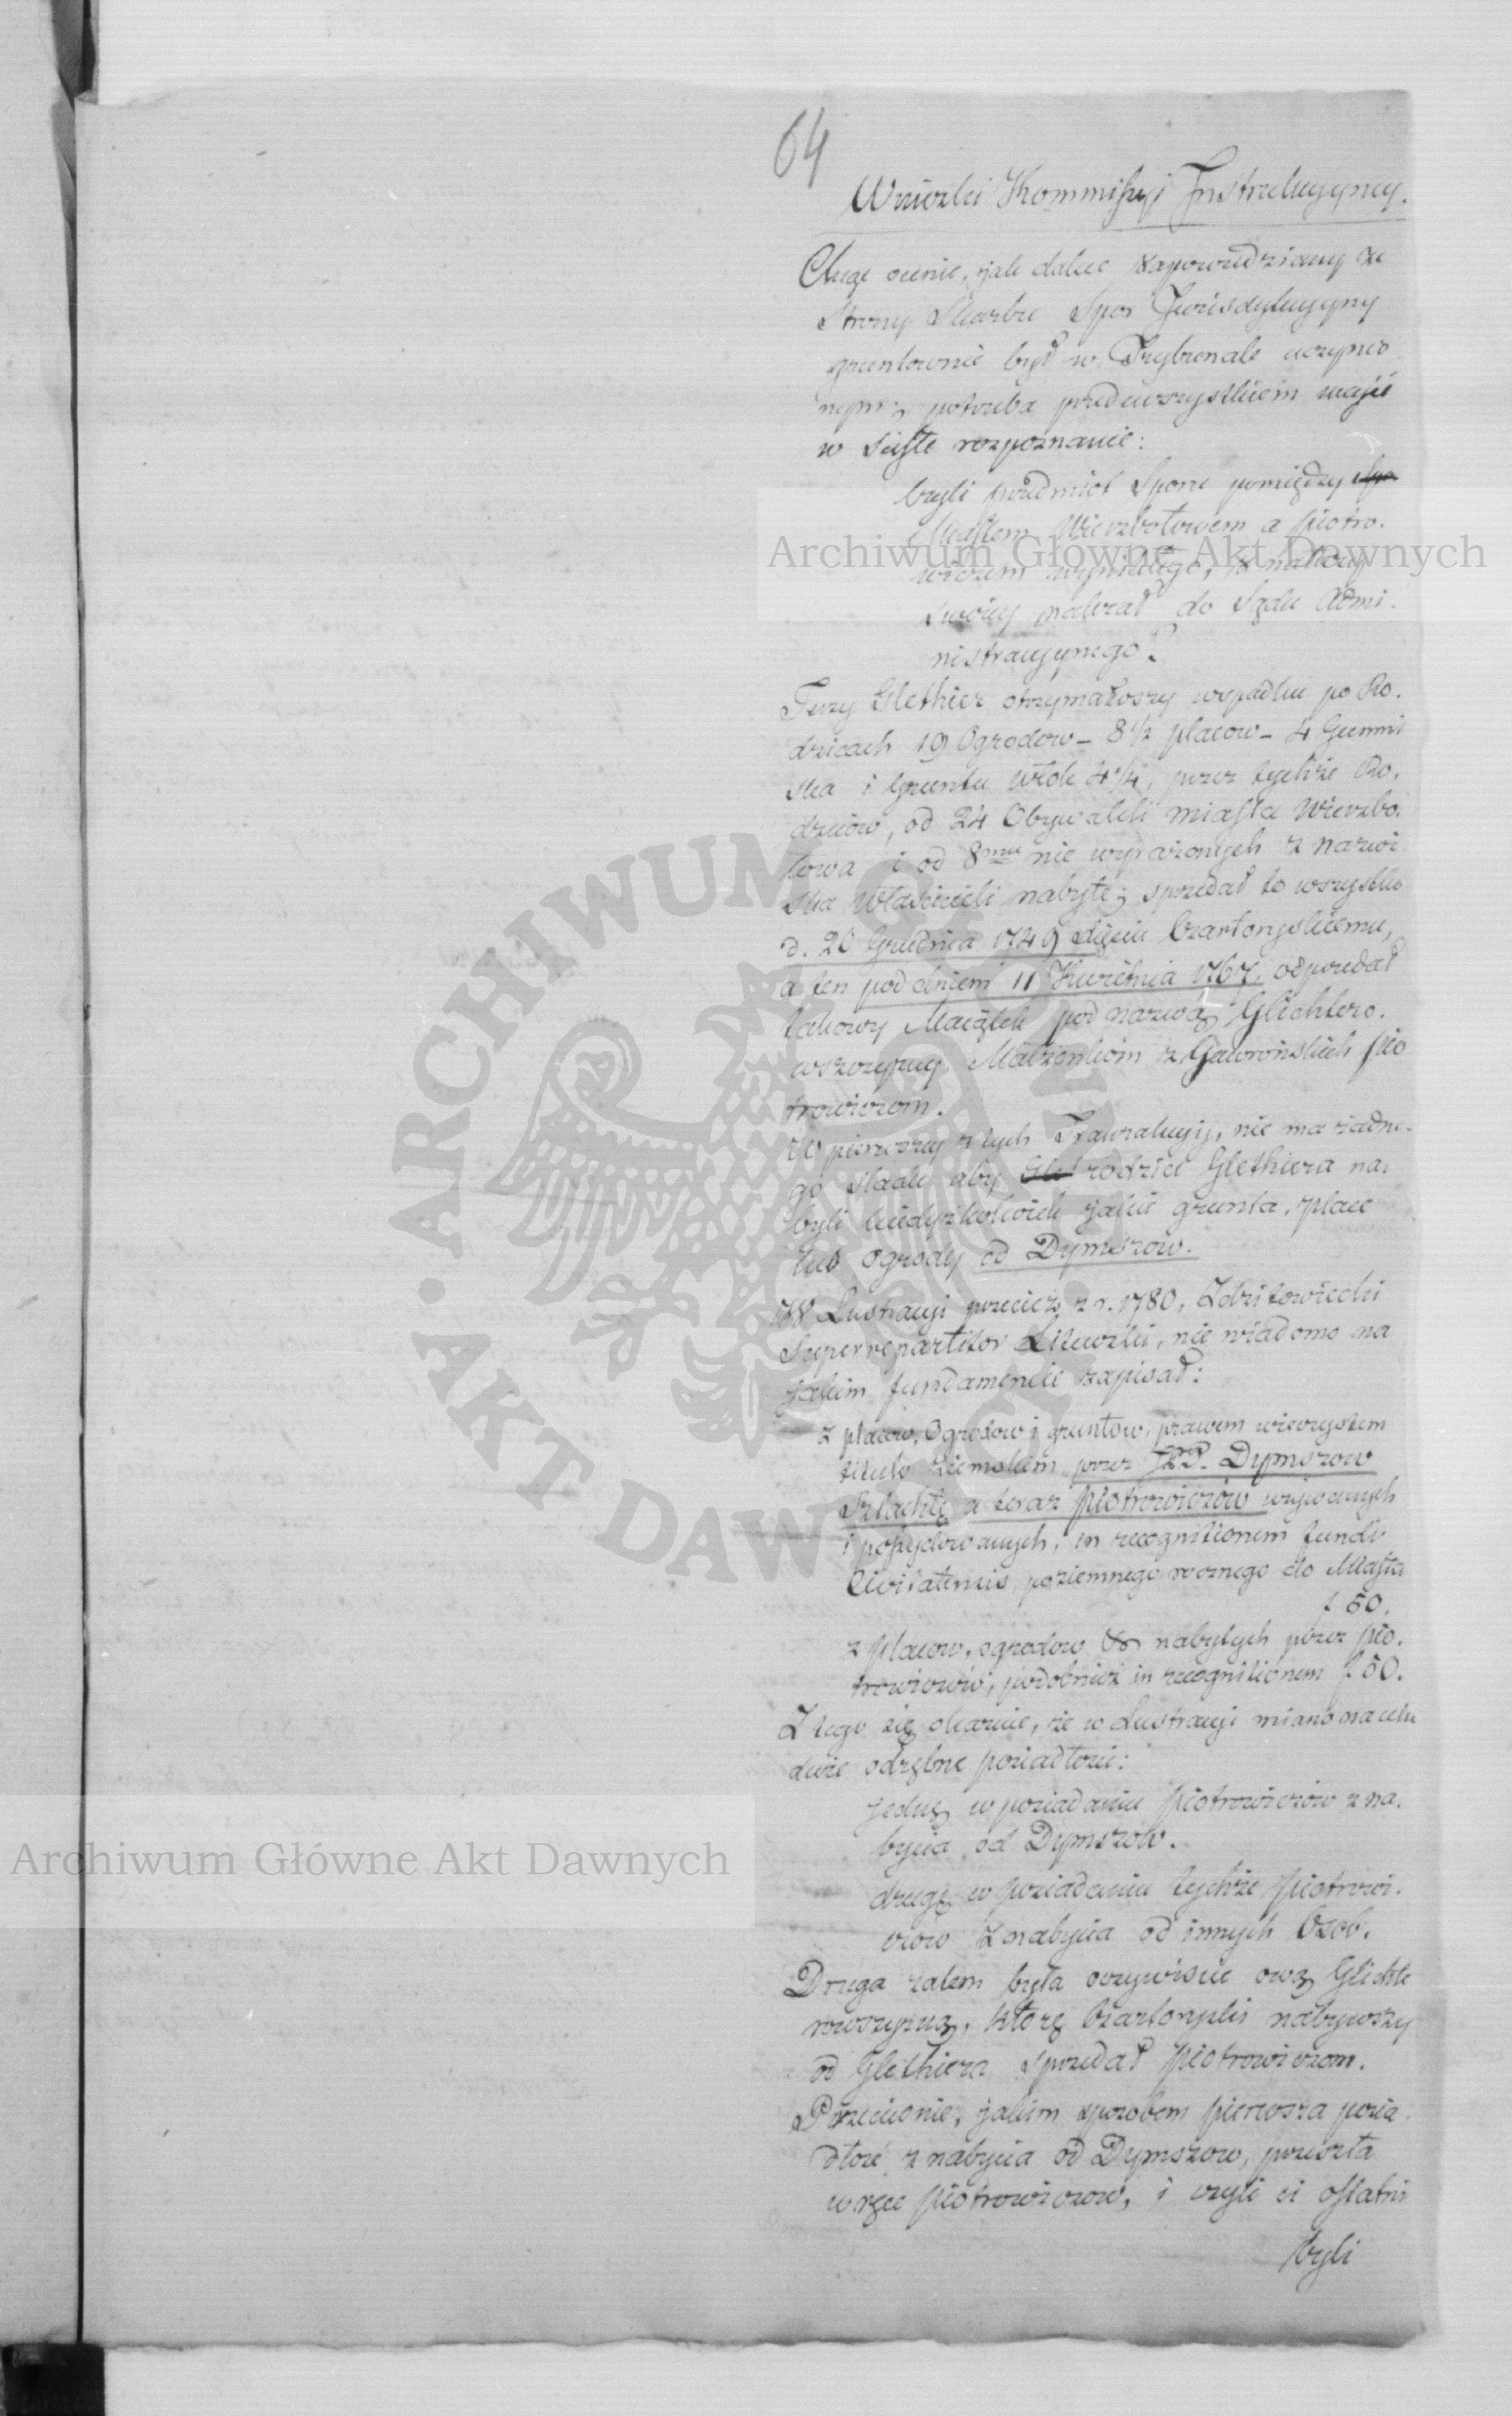 64
Wnioski Kommissyi Instrukcyyney.
Chcąc ocenić, jak dalece zapowiedziany ze
Strony Skarbu Spor Jurisdykcyyny
gruntownie był w Trybunale uczynio
nym; potrzeba przedewszystkiem wziąść
w ścisłe rozpoznanie:
czyli przedmiot Sporu pomiędzy Spo
Miastem Wierzbołowem a Piotro.
wiczem wynikłego, z natury
swoiey należał do Sądu Admi.
nistracyynego?
Jerzy Glethier otrzymawszy w spadku po Ro.
dzicach 19 Ogrodow – 8 1/2 placow – 4 Gumni
ska i Gruntu włok 4 1/4, przez tychże Ro.
dziców, od 24 Obywateli miasta Wierzbo.
łowa i od 8miu nie wyrażonych z nazwi
ska Właścicieli nabyte; sprzedał to wszystko
d. 20 Grudnia 1749 Xięciu Czartoryskiemu,
a ten pod dniem 11 Kwietnia 1767, odprzedał
takowy Maiątek pod nazwą Glichtero.
wszczyzny, Małżonkom z Gaworońskich Pio
trowiczom.
W pierwszey z tych Tranzakcyij, nie ma żadne.
go śladu aby Gle rodzice Glethiera na.
byli kiedyżkolwiek jakie grunta, place
lub ogrody od Dymszow.
W Lustracyi przecież z r. 1780, Zdzitowiecki
Superrepartitor Litewski, nie wiadomo na
jakim fundamencie zapisał:
z placow, Ogrodow i gruntow, prawem wieczystem
tituło ziemskim przez JPP. Dymszow
Szlachtę a teraz Piotrowiczów
i possydowanych, in recognitionem fundi
Civitatensis, poziemnego rocznego do Miasta
f 50.
z placow, ogrodow &c nabytych przez Pio.
trowiczów, podobnież in recognitionem f 50.
Z tego się okazuie, że w Lustracyi miano na celu
dwie odrębne posiadłości:
jednę w posiadaniu Piotrowiczów z na.
bycia od Dymszow.
drugę w posiadaniu tychże Piotrowi.
czow z nabycia od innych Osob.
Druga zatem była oczywiście ową Glichte
rowszczyzną, którę Czartoryski nabywszy
od Glethiera sprzedał Piotrowiczom.
Przeciwnie, jakim sposobem pierwsza posia
dłość z nabycia od Dymszow, przeszła
w ręce Piotrowiczow, i czyli ci ostatni
byli
Archiwum Główne Akt Dawnych
Archiwum Główne Akt Dawnych
ARCHIWUM GŁÓWNE
AKT DAWNYCH